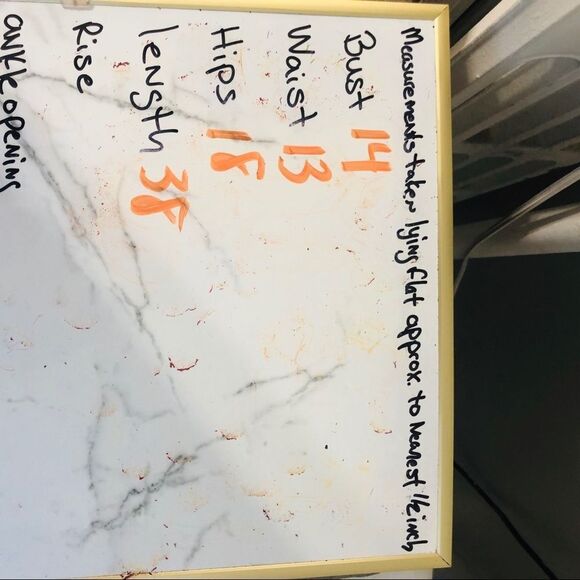 Measurements taken lying flat approx. to nearest 1/2 inch
Bust 14
Waist 13
Hips 18
length 38
Rise
ankle opening